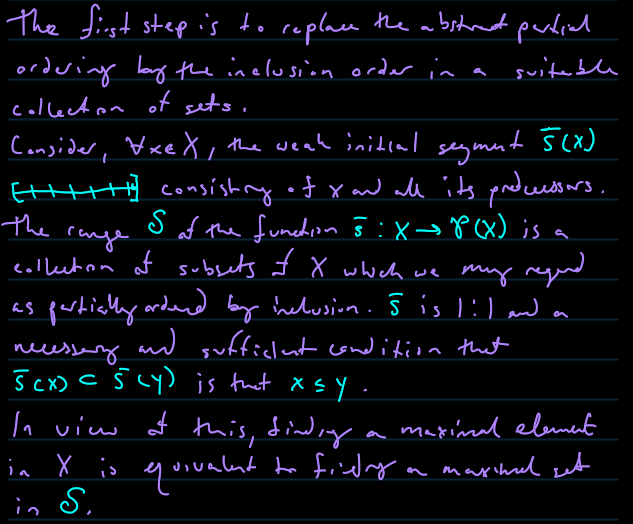 The first step is to replace the abstract partial
ordering by the inclusion order in a suitable
collection of sets.
Consider, ∀x∈X, the weak initial segment s̄(x)
consisting of x and all its predecessors.
The range 𝒮 of the function s̄ : X → 𝒫(X) is a
collection of subsets of X which we may regard
as partially ordered by inclusion. s̄ is 1:1 and a
necessary and sufficient condition that
s̄(x) ⊂ s̄(y) is that x ≤ y.
In view of this, finding a maximal element
in X is equivalent to finding a maximal set
in 𝒮.